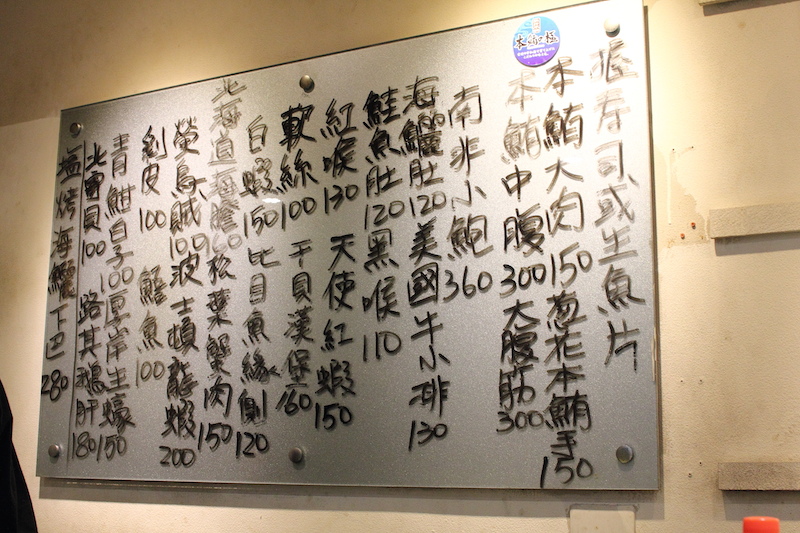 握寿司或生魚片
本鮪大肉150 葱花本鮪手150
本鮪中腹300 大腹筋300
南非小鮑360
海鱺肚120 美國牛小排130
鮭魚肚120 黑喉110
紅喉130 天使紅蝦150
軟絲100 干貝漢堡160
白蝦150 比目魚緣側120
北海道海膽160 松葉蟹肉150
螢烏賊100 波士頓龍蝦200
剝皮100 鱔魚100
青魽白子100 厚岸生蠔150
北寄貝100 路其鵝肝180
塩烤海鱺下巴280
本鮪の極